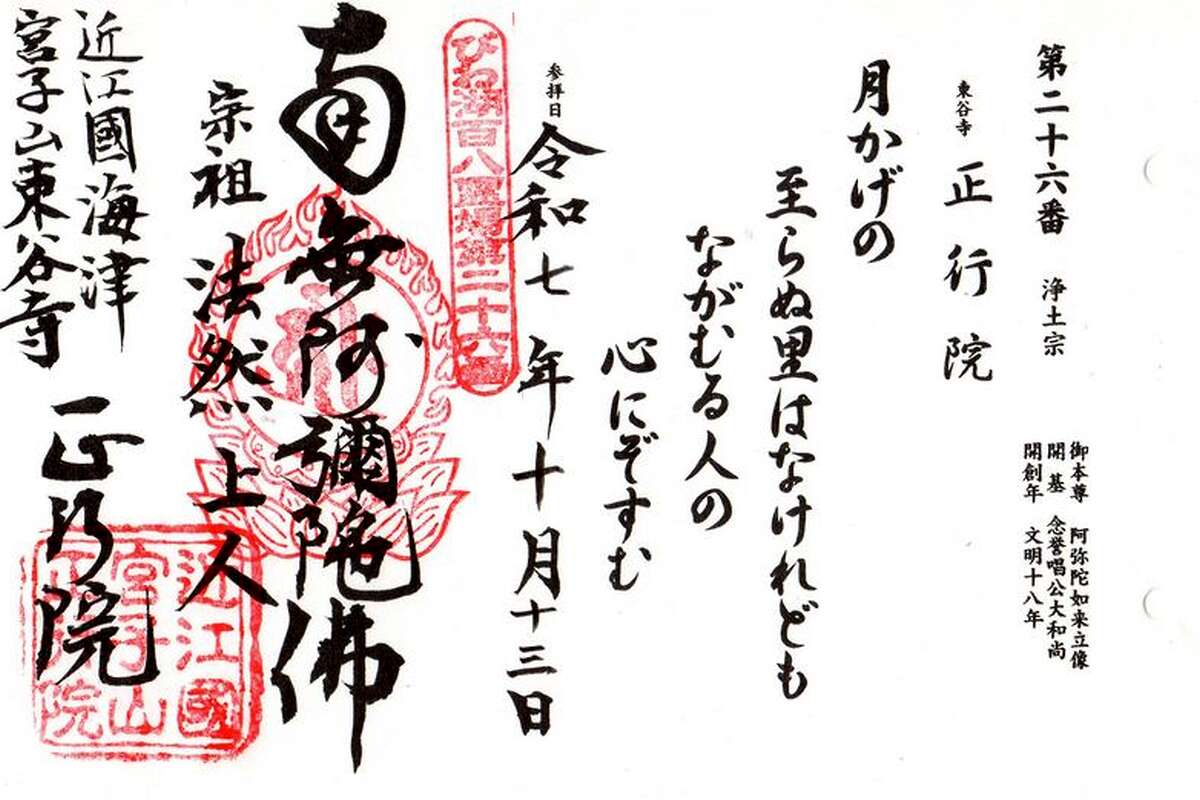 第二十六番 浄土宗
御本尊 阿弥陀如来立像
開基 念誉唱公大和尚
開創年 文明十八年
東谷寺 正行院
月かげの
至らぬ里はなけれども
ながむる人の
心にぞすむ
参拝日 令和七年十月十三日
びわ湖百八霊場第二十六番
南無阿彌陀佛
宗祖 法然上人
近江國海津
宮子山東谷寺 正行院
近江國
宮子山
正行院